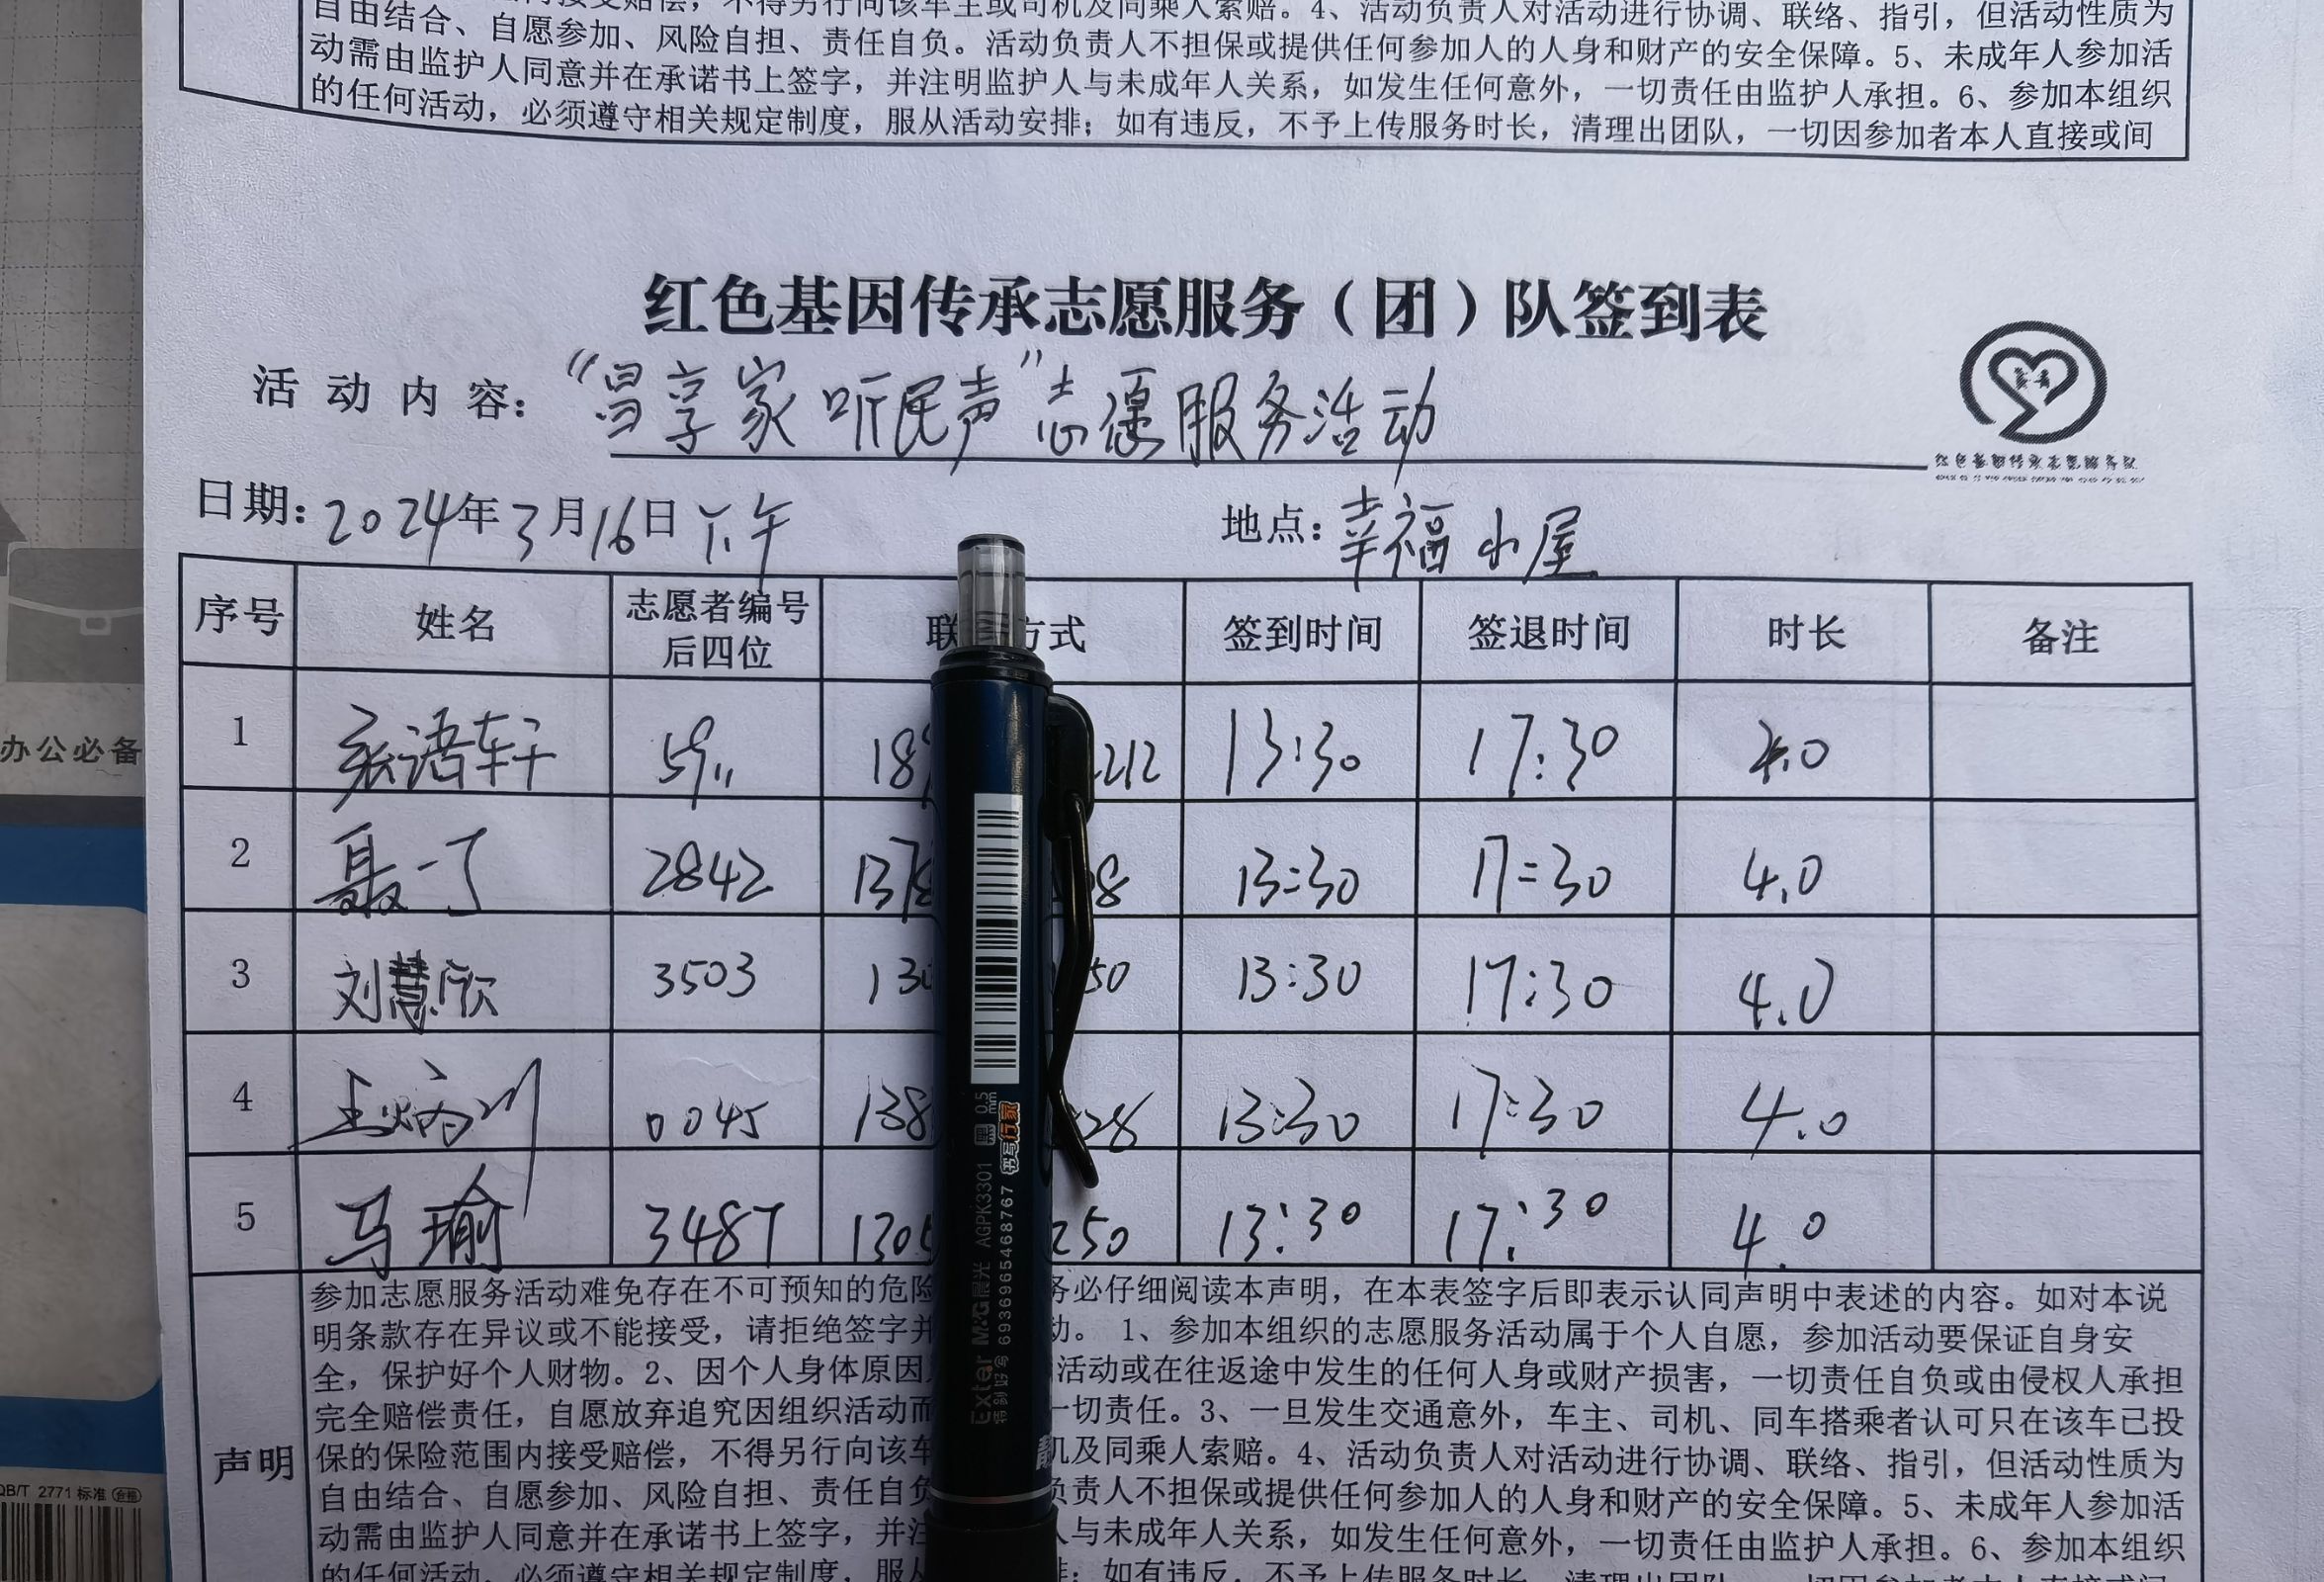 自由结合、自愿参加、风险自担、责任自负。活动负责人不担保或提供任何参加人的人身和财产的安全保障。5、未成年人参加活
动需由监护人同意并在承诺书上签字，并注明监护人与未成年人关系，如发生任何意外，一切责任由监护人承担。6、参加本组织
的任何活动，必须遵守相关规定制度，服从活动安排；如有违反，不予上传服务时长，清理出团队，一切因参加者本人直接或间
红色基因传承志愿服务（团）队签到表
活动内容：“昌享家 听民声”志愿服务活动
日期：2024年3月16日下午 地点：幸福小屋
序号 姓名 志愿者编号后四位 联 方式 签到时间 签退时间 时长 备注
1 语轩 5911 18 212 13:30 17:30 4.0
2 聂一丁 2842 137 8 13:30 17:30 4.0
3 刘慧欣 3503 130 50 13:30 17:30 4.0
4 王炳川 0045 138 28 13:30 17:30 4.0
5 马瑜 3487 130 250 13:30 17:30 4.0
声明
参加志愿服务活动难免存在不可预知的危险 务必仔细阅读本声明，在本表签字后即表示认同声明中表述的内容。如对本说
明条款存在异议或不能接受，请拒绝签字并 动。 1、参加本组织的志愿服务活动属于个人自愿，参加活动要保证自身安
全，保护好个人财物。2、因个人身体原因 活动或在往返途中发生的任何人身或财产损害，一切责任自负或由侵权人承担
完全赔偿责任，自愿放弃追究因组织活动而 一切责任。3、一旦发生交通意外，车主、司机、同车搭乘者认可只在该车已投
保的保险范围内接受赔偿，不得另行向该车 机及同乘人索赔。4、活动负责人对活动进行协调、联络、指引，但活动性质为
自由结合、自愿参加、风险自担、责任自负 负责人不担保或提供任何参加人的人身和财产的安全保障。5、未成年人参加活
动需由监护人同意并在承诺书上签字，并注 人与未成年人关系，如发生任何意外，一切责任由监护人承担。6、参加本组织
办公必备
QB/T 2771 标准 合格
Exter M&G晨光 AGPK3301 黑 0.5mm
特别好写 6936965468767 书写行家